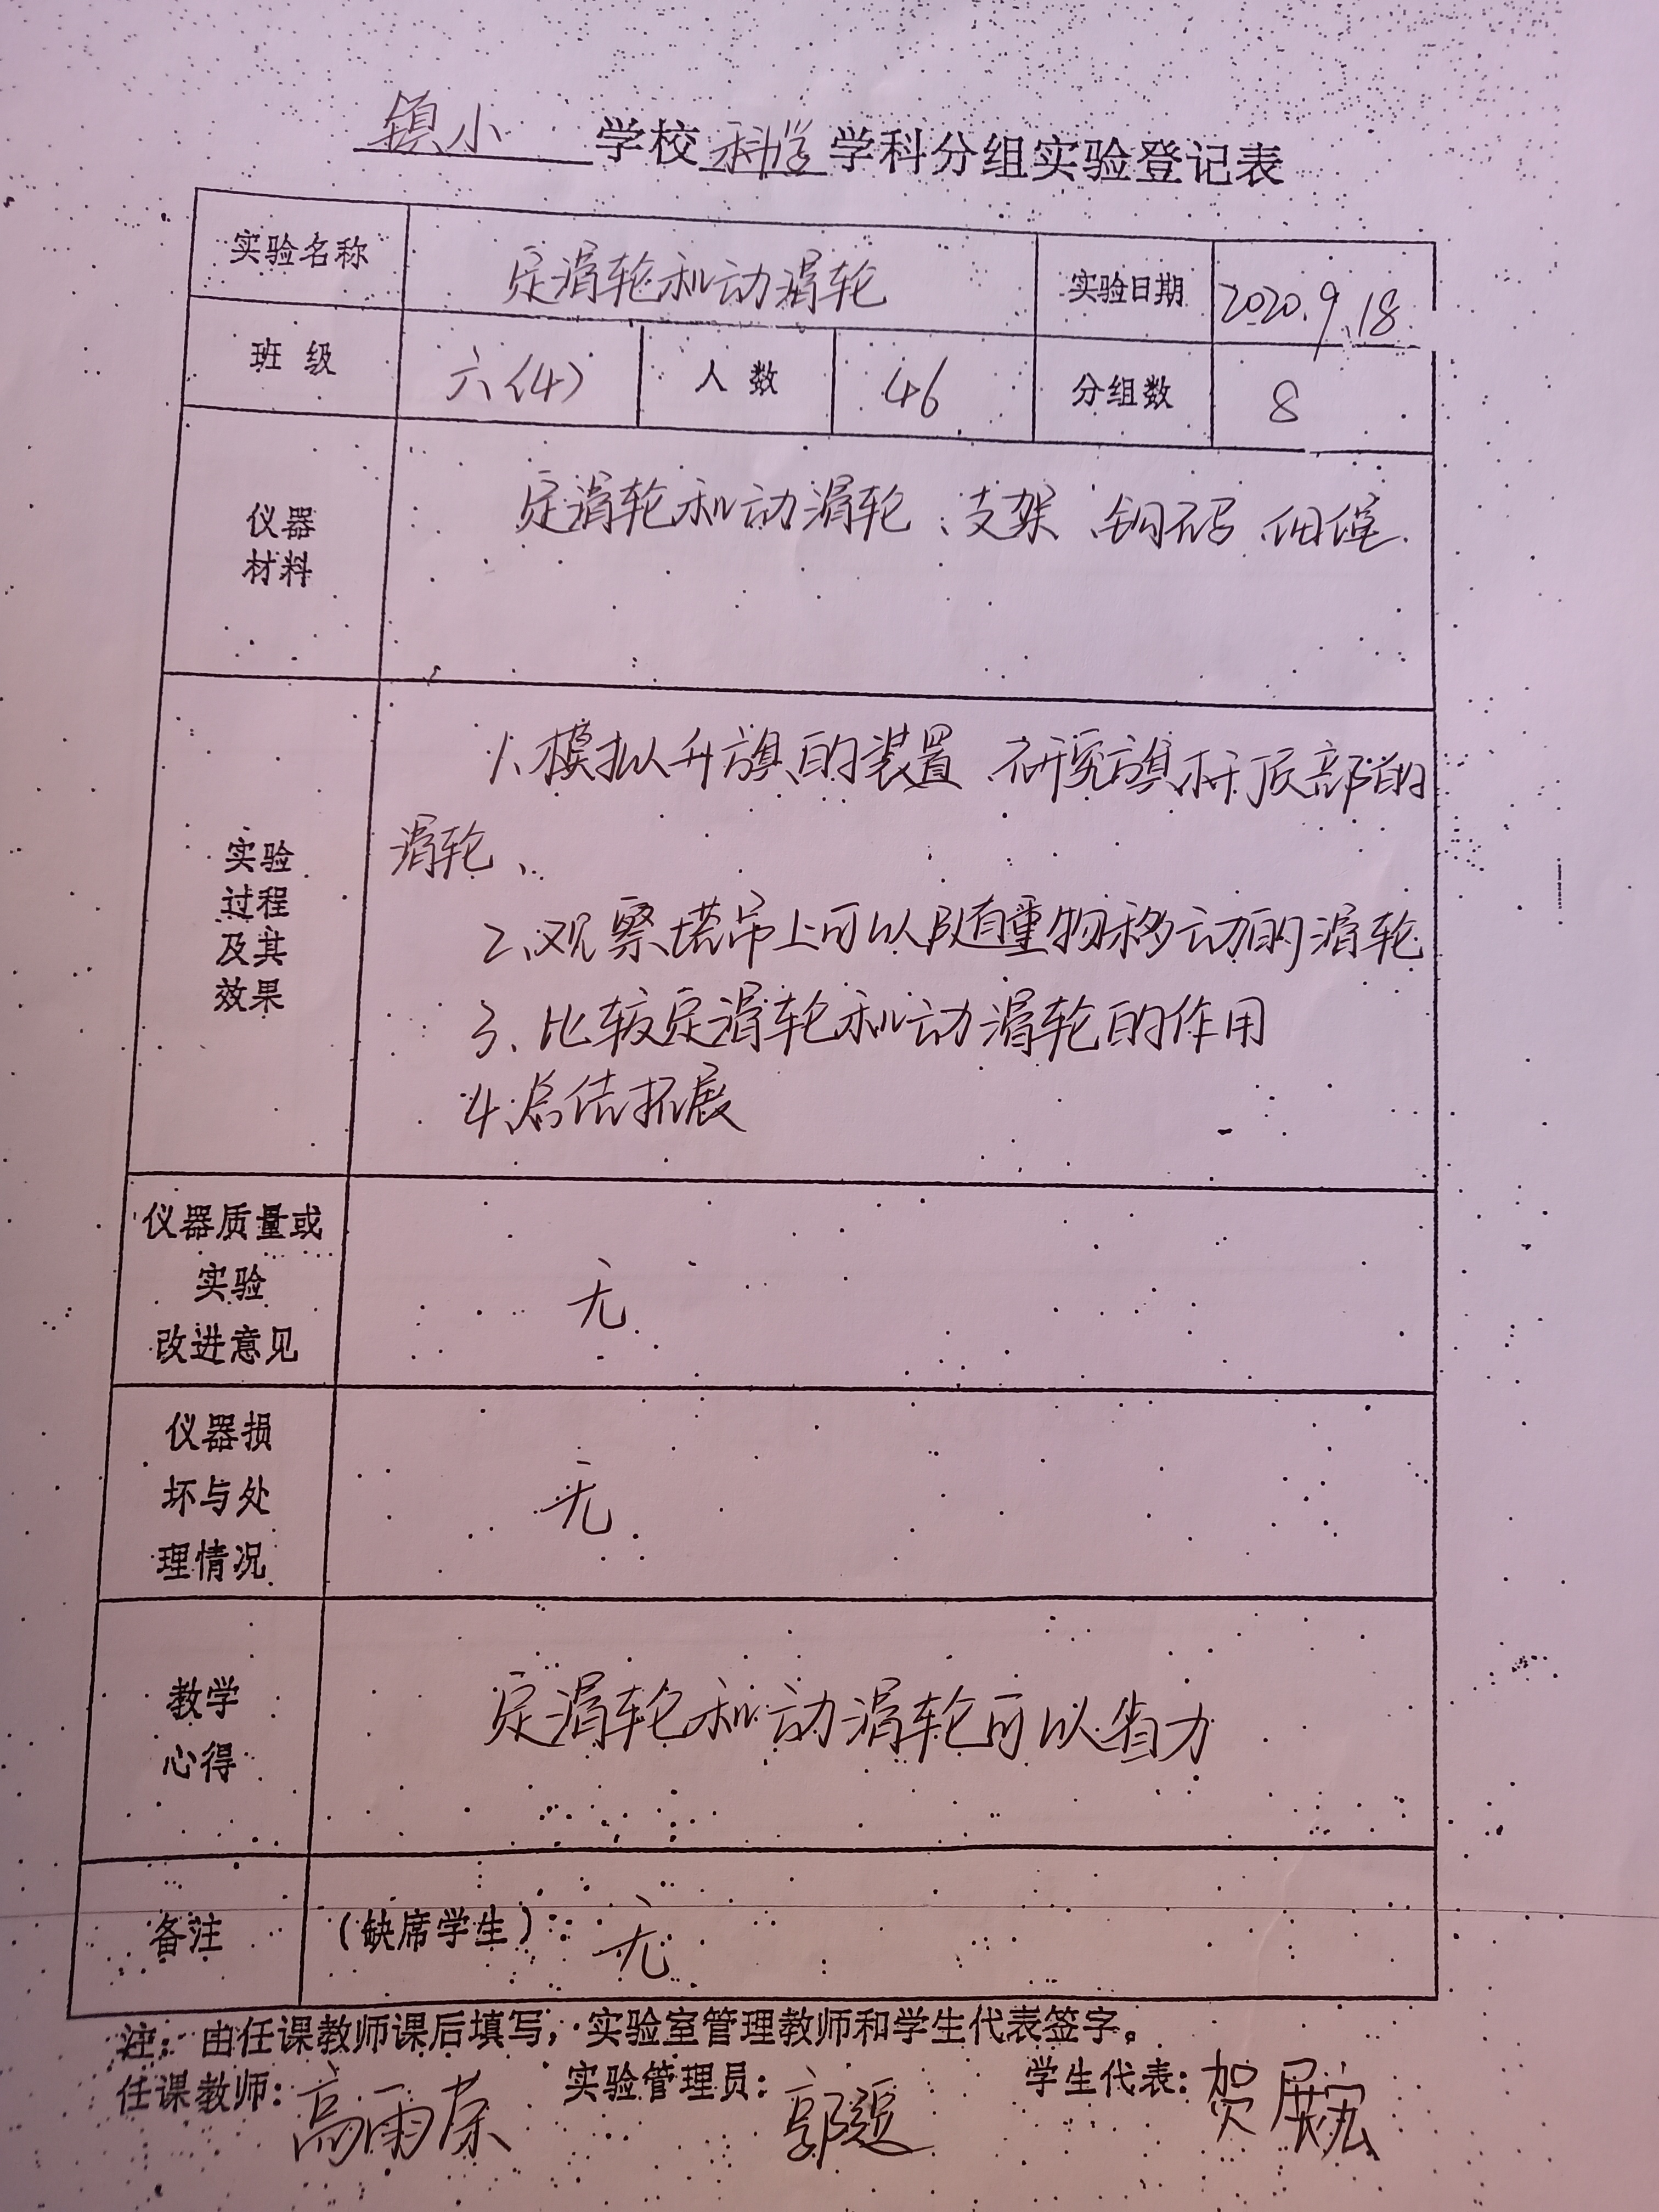 镇小 学校 科学 学科分组实验登记表
实验名称 定滑轮和动滑轮 实验日期 2020.9.18
班 级 六(4) 人 数 46 分组数 8
仪器
材料
定滑轮和动滑轮、支架、钩码、细绳.
实验
过程
及其
效果
1.模拟升旗的装置、研究旗杆顶部的
滑轮、
2、观察塔吊上可以随重物移动的滑轮
3、比较定滑轮和动滑轮的作用
4.总结拓展
仪器质量或
实验
改进意见
无
仪器损
坏与处
理情况
无
教学
心得
定滑轮和动滑轮可以省力
备注 (缺席学生): 无
注: 由任课教师课后填写, 实验室管理教师和学生代表签字。
任课教师: 高雨 实验管理员: 郭 学生代表: 贺展宏